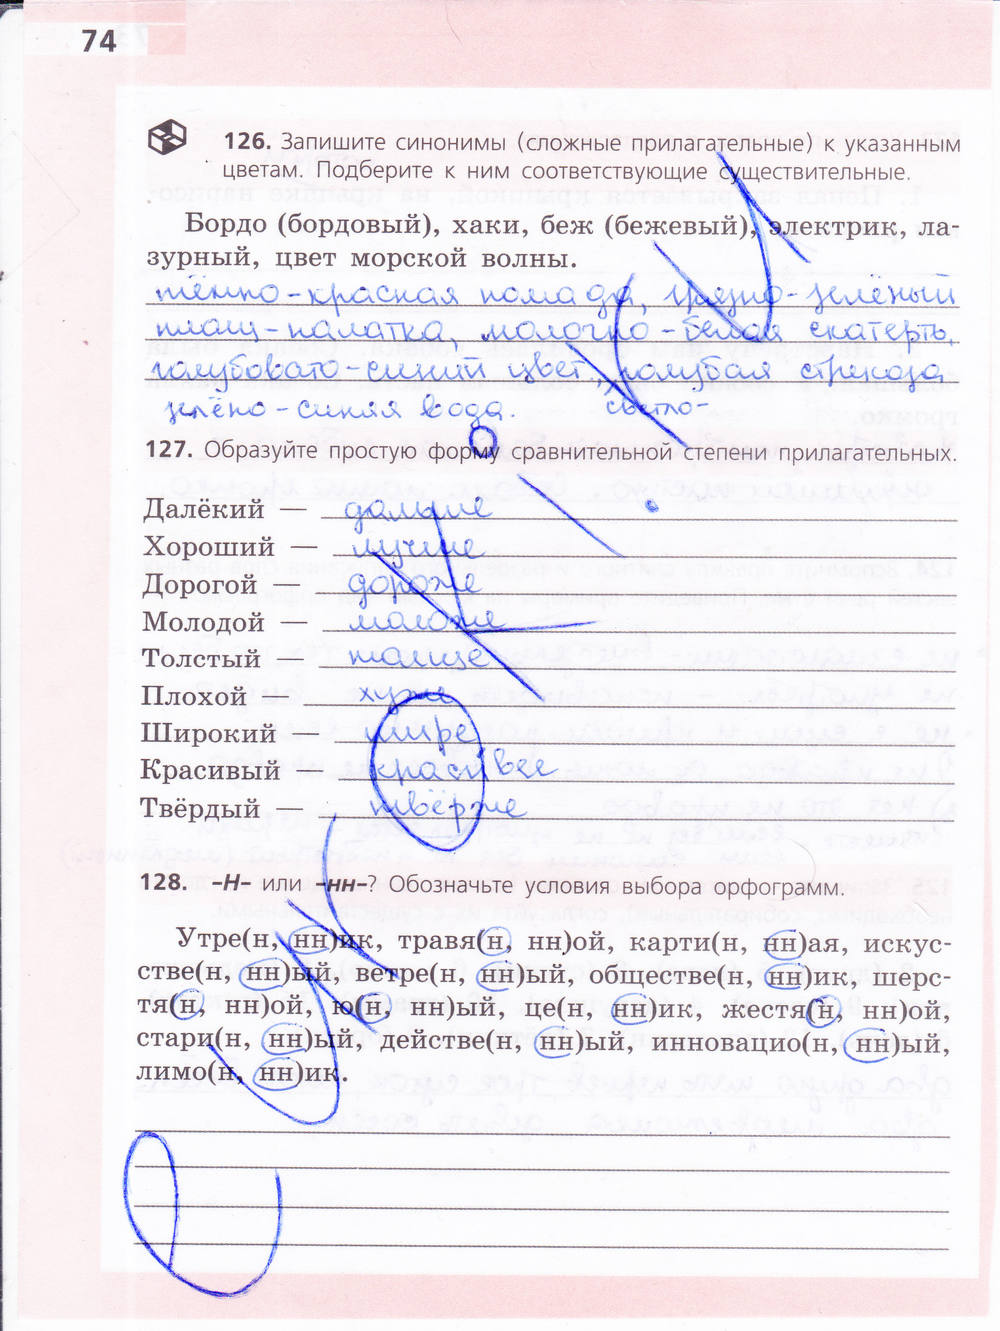 74
126. Запишите синонимы (сложные прилагательные) к указанным
цветам. Подберите к ним соответствующие существительные.
Бордо (бордовый), хаки, беж (бежевый), электрик, ла-
зурный, цвет морской волны.
тёмно-красная помада, грязно-зелёный
плащ-палатка, молочно-белая скатерть,
голубовато-синий цвет, голубая стрекоза
зелёно-синяя вода. светло-
127. Образуйте простую форму сравнительной степени прилагательных.
Далёкий — дальше
Хороший — лучше
Дорогой — дороже
Молодой — моложе
Толстый — толще
Плохой — хуже
Широкий — шире
Красивый — красивее
Твёрдый — твёрже
128. -Н- или -нн-? Обозначьте условия выбора орфограмм.
Утре(н, нн)ик, травя(н, нн)ой, карти(н, нн)ая, искус-
стве(н, нн)ый, ветре(н, нн)ый, обществе(н, нн)ик, шерс-
тя(н, нн)ой, ю(н, нн)ый, це(н, нн)ик, жестя(н, нн)ой,
стари(н, нн)ый, действе(н, нн)ый, инновацио(н, нн)ый,
лимо(н, нн)ик.